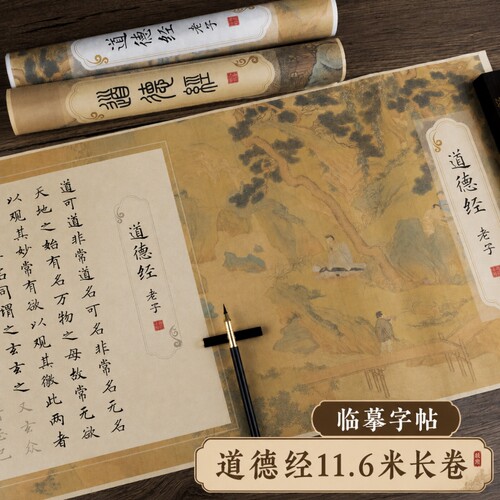 道德经
老子
道德經
道德经
老子
道德经
老子
道可道非常道名可名非常名无名
天地之始有名万物之母故常无欲
以观其妙常有欲以观其徼此两者
名同谓之玄玄之又玄众
临摹字帖
道德经11.6米长卷